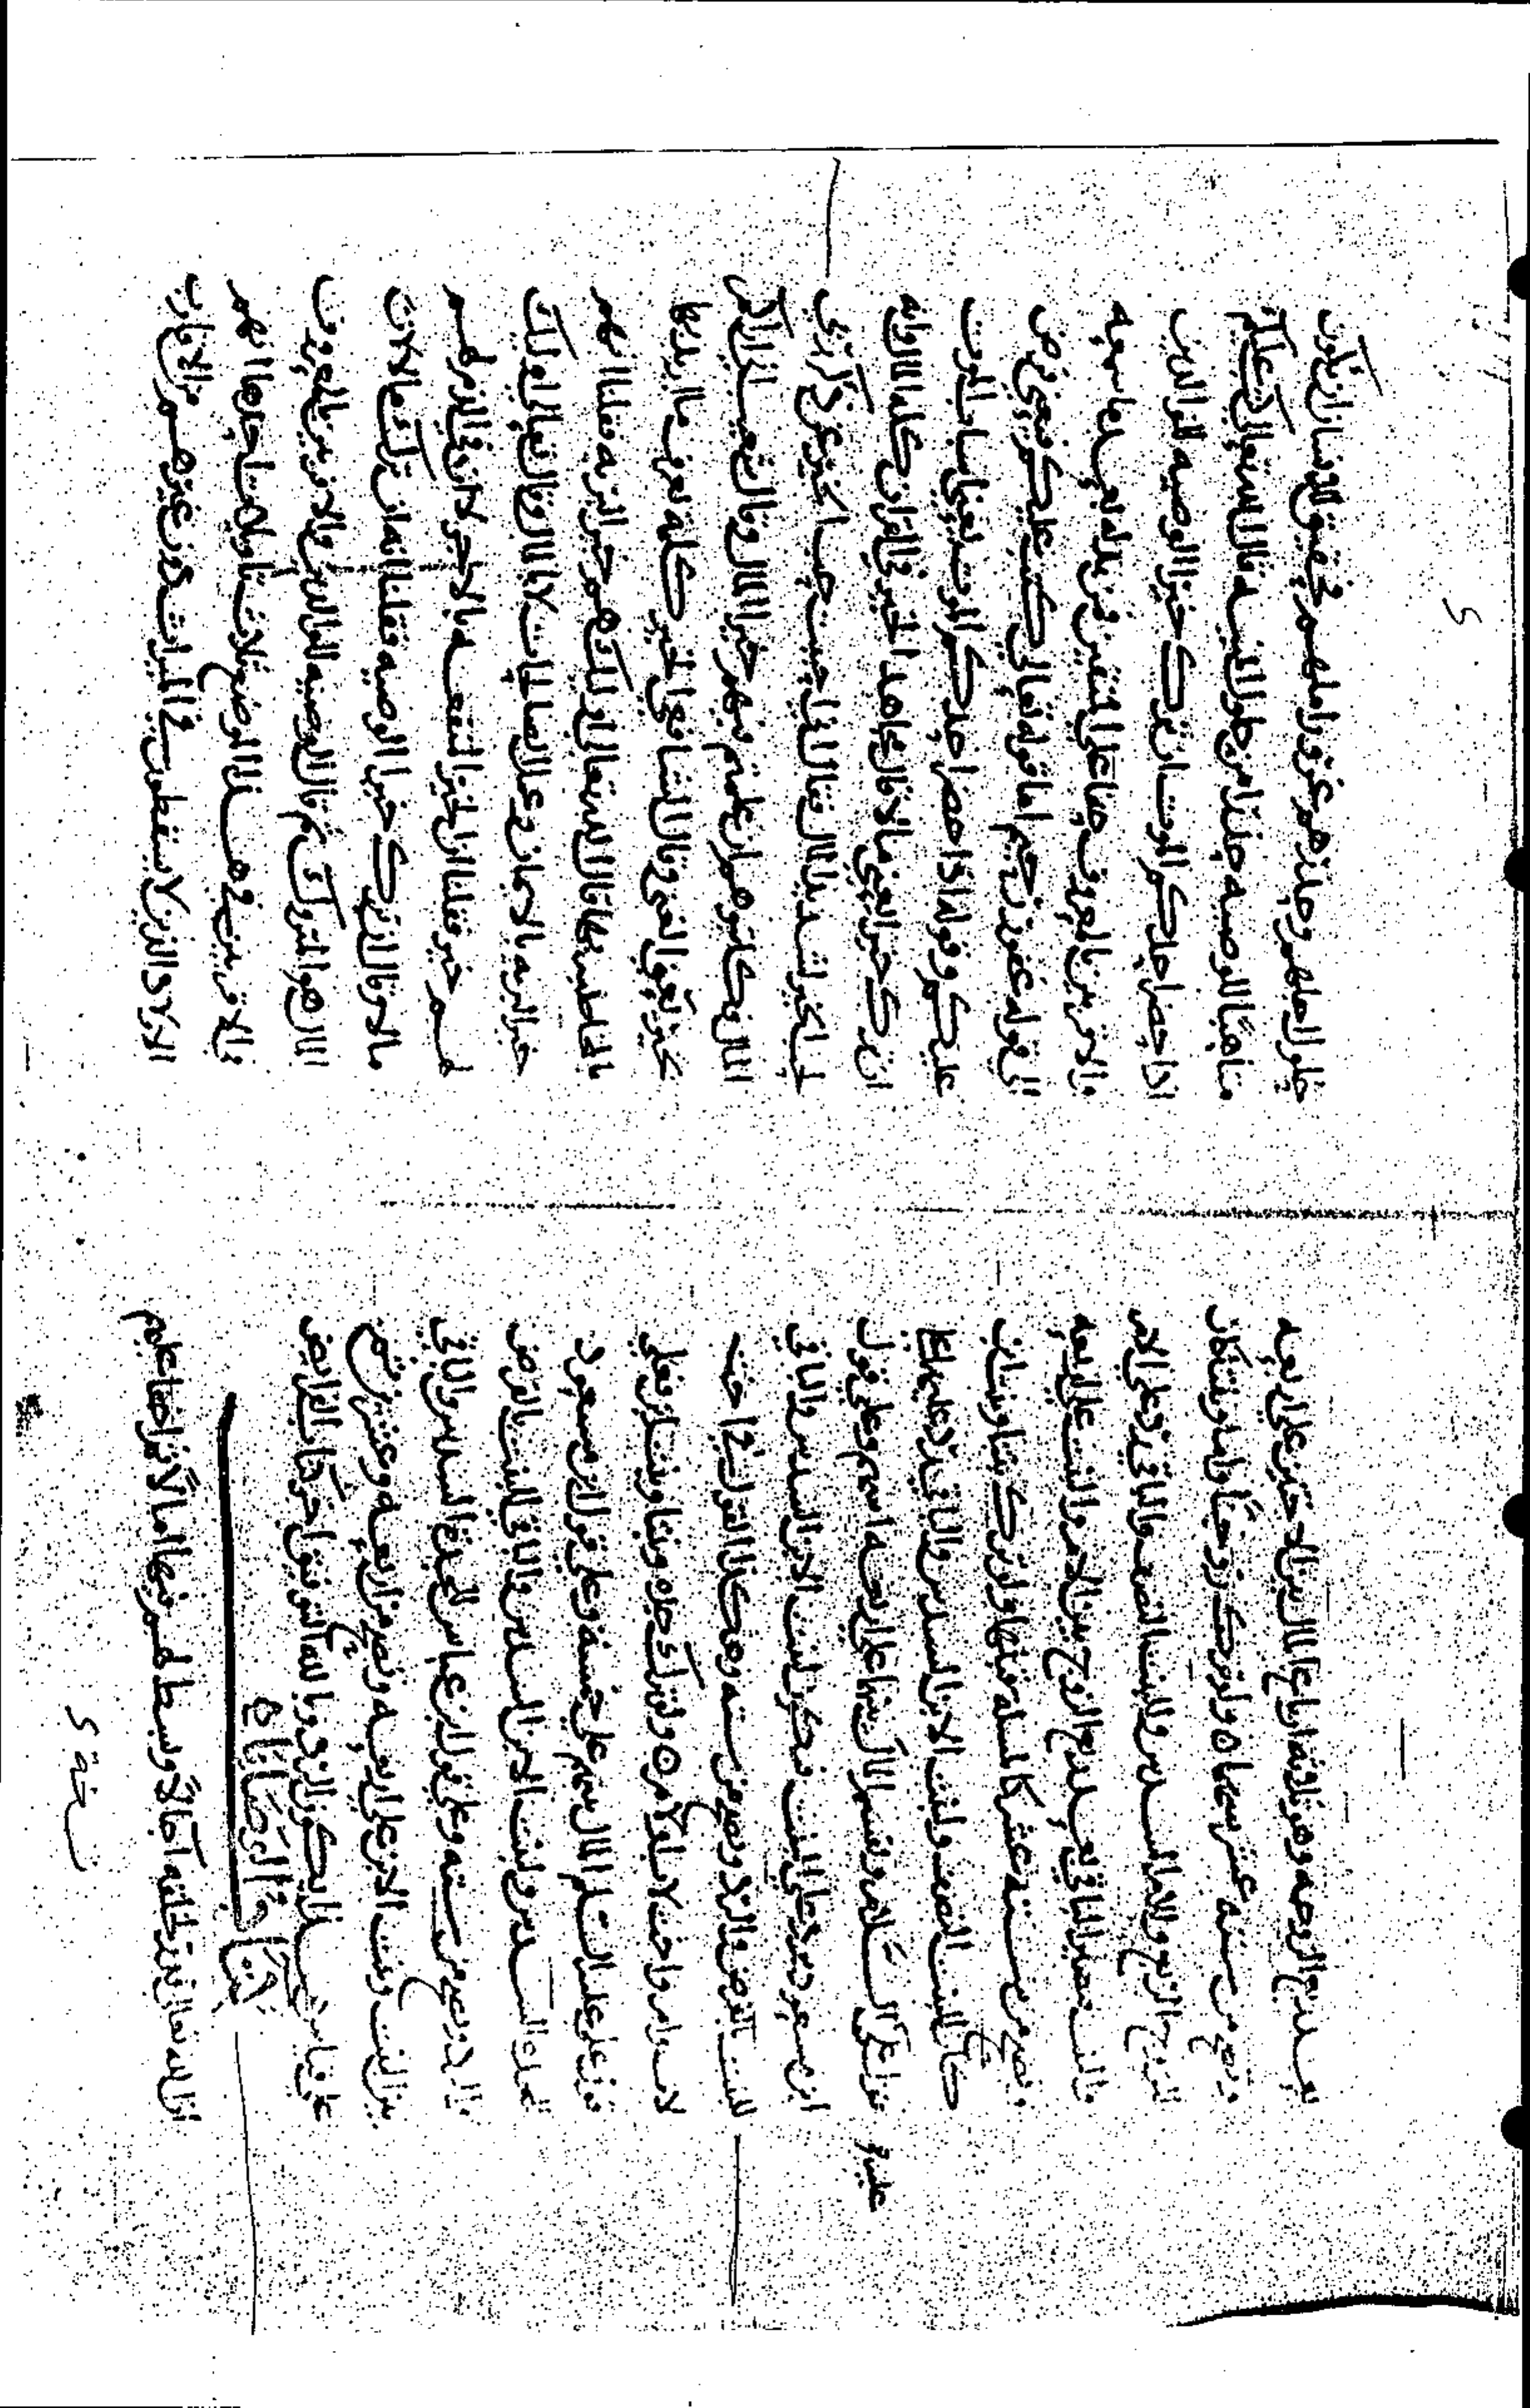 بعد ربع الزوجه وهو ثلاثه ارباع المال بين الجدتين على اربعه
وتصح من سته عشر سهما ه ولو ترك زوجا واما وبنتا كان
للزوج الربع وللام السدس وللبنت النصف والباقي يرد على الام
والبنت فيصير الباقي بعد ربع الزوج بين الام والبنت على اربعه
وتصح من سته عشر كالمسله قبلها ولو ترك بنتا وبنت ابن
كان للبنت النصف ولبنت الابن السدس والباقي يرد عليهما على
قول علي عليه السلام ويقسم المال بينهما على اربعه اسهم وعلى قول
ابن مسعود يرد على البنت فيكون لبنت الابن السدس والباقي
للبنت بالفرض والرد وتصح من سته وهكذا القول في اخت
لاب وام واخت لاب ولو ترك جده وبنتا وبنت ابن فعلى
قول علي عليه السلم المال بينهم على خمسه وعلى قول ابن مسعود
للجده السدس ولبنت الابن السدس والباقي للبنت بالفرض
والرد وتصح من سته وعلى قول ابن عباس للجده السدس والباقي
بين البنت وبنت الابن على اربعه وتصح من اربعه وعشرين ثم
على قياس هذا يكون الرد وبالله التوفيق اخر كتاب الفرايض
كتاب الوصايا
ان الله تعالى قدر لخلقه اجالا وبسط لهم فيها امالا ثم اخفى عليهم
نسخة 5
5
حلول اجالهم وحذرهم غرور امالهم فحقيق للانسان ان يكون
متاهبا للوصيه حذرا من حلول المنيه قال الله تعالى كتب عليكم
اذا حضر احدكم الموت ان ترك خيرا الوصيه للوالدين
والاقربين بالمعروف حقا على المتقين فمن بدله بعد ما سمعه
الى قوله غفور رحيم اما قوله تعالى كتب عليكم فيعني فرض
عليكم وقوله اذا حضر احدكم الموت يعني اسباب الموت
ان ترك خيرا يعني مالا قال مجاهد الخير في القران كله المال وانه
لحب الخير لشديد المال فقال اني احببت حب الخير عن ذكر ربي
المال فكاتبوهم ان علمتم فيهم خيرا المال وقال شعيب اني اراكم
بخير يعني الغنى وقال الشافعي الخير كلمه تعرف ما اريد بها
بالمخاطبه بها قال الله تعالى اولئك هم خير البريه فقلنا انهم
خير البريه بالايمان وعمل الصالحات لا بالمال وقال تعالى
خير فقلنا ان الخير المنفعه بالاجر لا ان في البدن لهم
مالا وقال ان ترك خيرا الوصيه فقلنا انه ان ترك مالا لان
المال هو المتروك ثم قال الوصيه للوالدين والاقربين بالمعروف
والاقربين في هذا الموضع ثلاث تاويلات احدها انهم
الاولاد الذين لا يسقطون في الميراث دون غيرهم من الاقارب